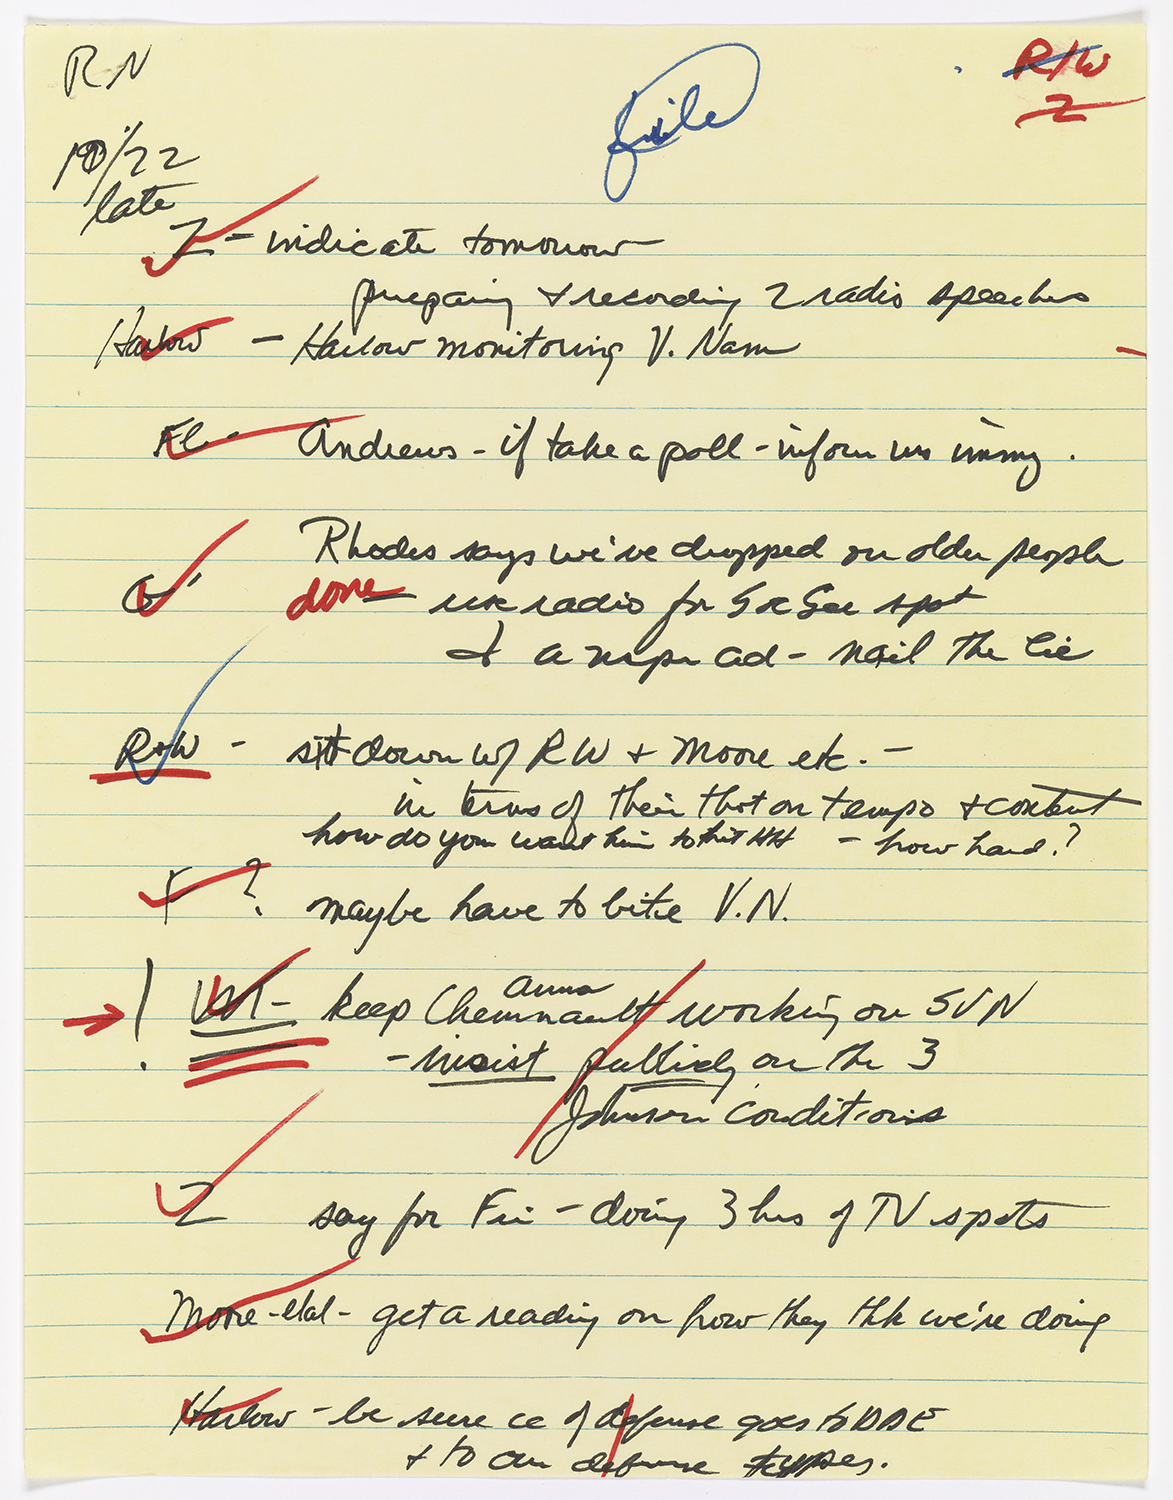 RN
R/W
file
10/22
late
Z
Z - indicate tomorrow
preparing + recording 2 radio speeches
Harlow - Harlow monitoring V. Nam
Fl. Andrews - if take a poll - inform us immy.
Rhodes says we've dropped on older people
G done use radio for Soc Sec spot
+ a nspr ad - nail the lie
R+W - sit down w/ RW + Moore etc. -
in terms of their thot on tempo + content
how do you want him to hit HH - how hard?
F ? maybe have to bite V.N.
anna
! keep Chennault working on SVN
- insist publicly on the 3
Johnson conditions
Z say for Fri - doing 3 hrs of TV spots
Moore - etal - get a reading on how they thk we're doing
Harlow - be sure cc of defense goes to DDE
+ to our defense types.